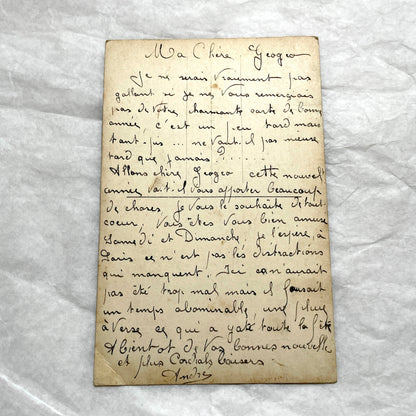 Ma Chère Geogeo
Je ne serais vraiment pas
gallant si je ne vous remerciais
pas de votre charmante carte de bonne
année, c'est un peu tard mais
tant-pis ... ne vaut-il pas mieux
tard que jamais? .....
Allons chère Geogeo cette nouvelle
année va-t-il vous apporter beaucoup
de choses, je vous le souhaite de tout
coeur, Vous êtes vous bien amusé
Samedi et Dimanche, je l'espère, à
Paris ce n'est pas les distractions
qui manquent. Ici on aurait
pas été trop mal mais il faisait
un temps abominable, une pluie
à verse ce qui a gaté toute la fête
A bientot de vos bonnes nouvelle
et plus Cordials baisers
André